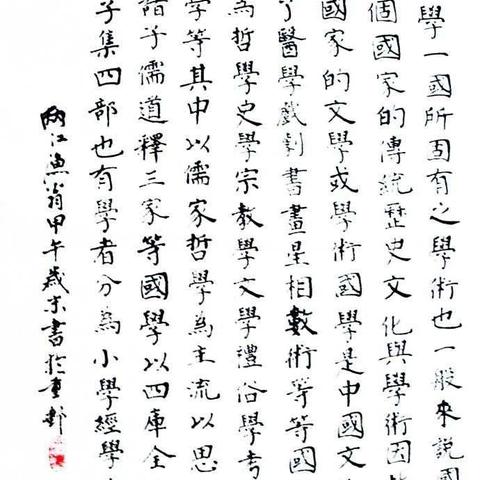 學一國所固有之學術也一般來說國
個國家的傳統歷史文化與學術因
國家的文學或學術國學是中國文
了醫學戲劇書畫星相數術等等國
為哲學史學宗教學文學禮俗學考
學等其中以儒家哲學為主流以思
諸子儒道釋三家等國學以四庫全
子集四部也有學者分為小學經學
兩江漁翁甲午歲末書於重都